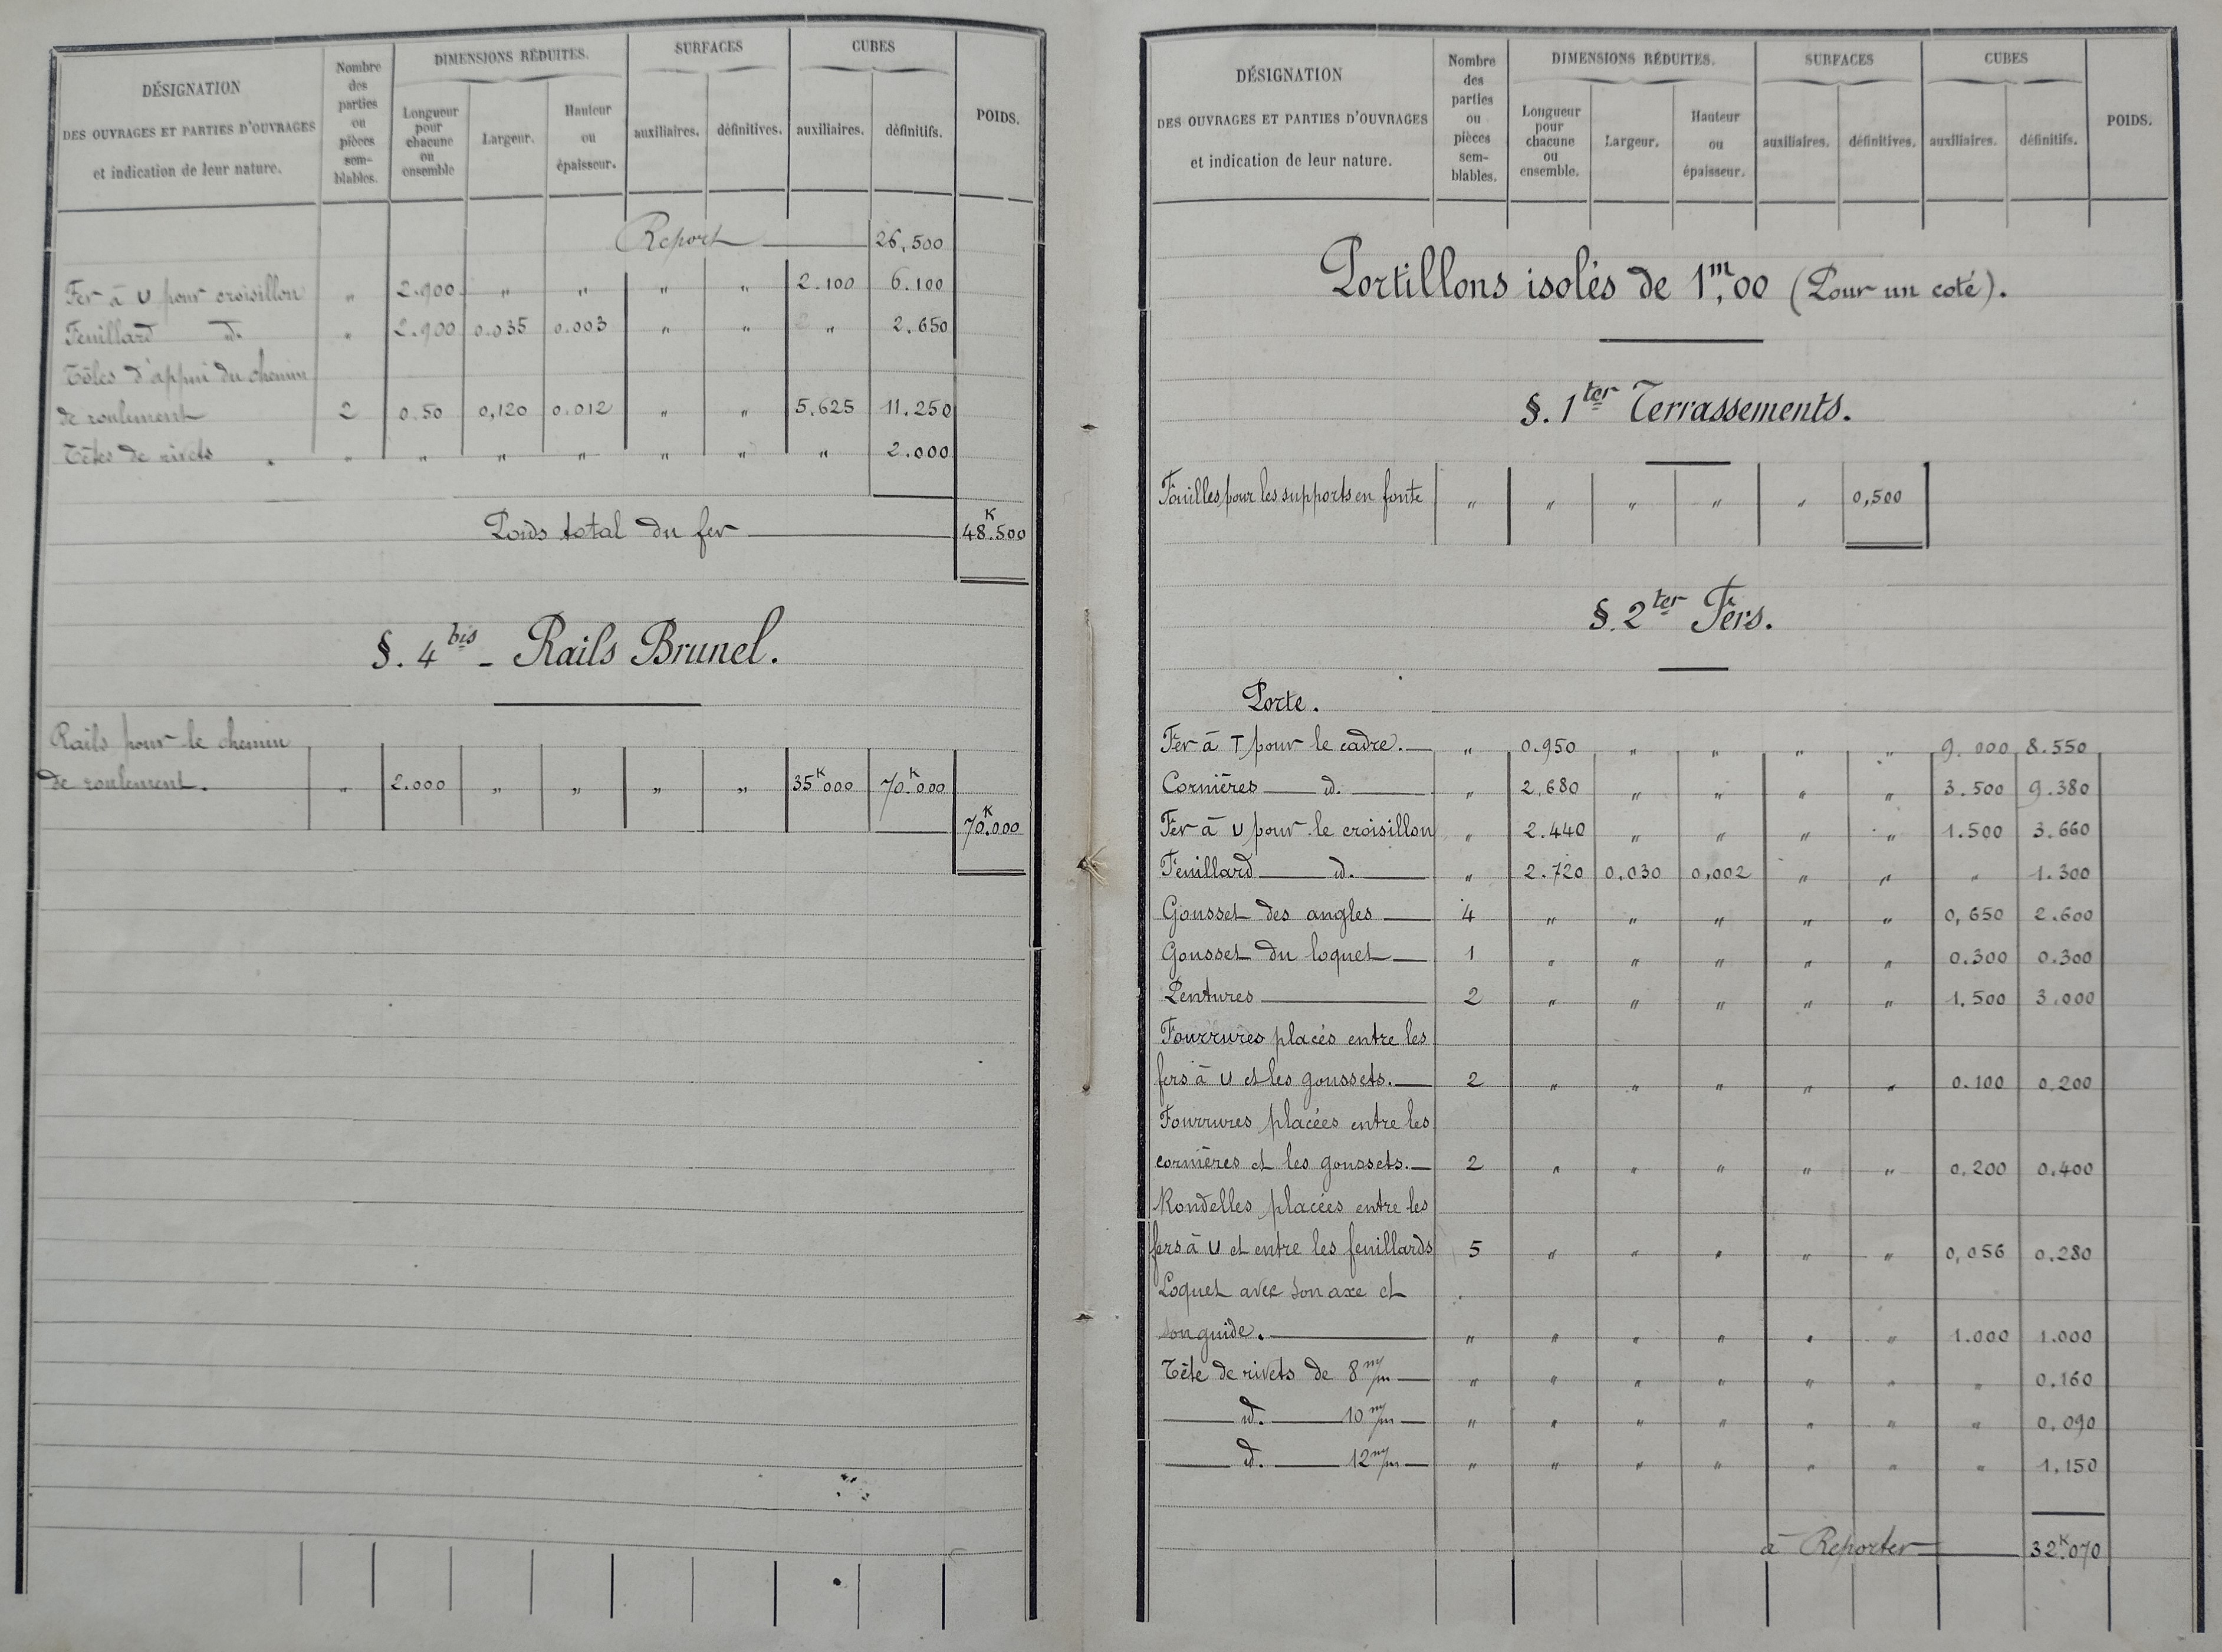 DÉSIGNATION
DES OUVRAGES ET PARTIES D'OUVRAGES
et indication de leur nature.
Nombre
des
parties
ou
pièces
sem-
blables.
DIMENSIONS RÉDUITES.
Longueur
pour
chacune
ou
ensemble
Largeur.
Hauteur
ou
épaisseur.
SURFACES
auxiliaires.
définitives.
CUBES
auxiliaires.
définitifs.
POIDS.
Report 26,500
Fer à U pour croisillon " 2.900 " " " " 2.100 6.100
Feuillard d. " 2.900 0.035 0.003 " " " 2.650
Tôles d'appui du chemin
de roulement 2 0.50 0,120 0.012 " " 5.625 11.250
Têtes de rivets " " " " " " " 2.000
Poids total du fer 48.K500
§. 4 bis - Rails Brunel.
Rails pour le chemin
de roulement. " 2.000 " " " " 35K000 70.K000
70.K000
DÉSIGNATION
DES OUVRAGES ET PARTIES D'OUVRAGES
et indication de leur nature.
Nombre
des
parties
ou
pièces
sem-
blables.
DIMENSIONS RÉDUITES.
Longueur
pour
chacune
ou
ensemble.
Largeur.
Hauteur
ou
épaisseur.
SURFACES
auxiliaires.
définitives.
CUBES
auxiliaires.
définitifs.
POIDS.
Portillons isolés de 1m,00 (Pour un coté).
§. 1ter Terrassements.
Fouilles pour les supports en fonte " " " " " 0,500
§. 2ter Fers.
Porte.
Fer à T pour le cadre. " 0.950 " " " " 9.000 8.550
Cornières d. " 2,680 " " " " 3.500 9.380
Fer à U pour le croisillon " 2.440 " " " " 1.500 3.660
Feuillard d. " 2.720 0.030 0,002 " " " 1.300
Gousset des angles 4 " " " " " 0,650 2.600
Gousset du loquet 1 " " " " " 0.300 0.300
Pentures 2 " " " " " 1,500 3.000
Fourrures placés entre les
fers à U et les goussets. 2 " " " " " 0.100 0.200
Fourrures placées entre les
cornières et les goussets. 2 " " " " " 0,200 0.400
Rondelles placées entre les
fers à U et entre les feuillards 5 " " " " " 0,056 0.280
Loquet avec son axe et
son guide. " " " " " " 1.000 1.000
Tête de rivets de 8 m/m " " " " " " " 0.160
d. 10 m/m " " " " " " " 0,090
d. 12 m/m " " " " " " " 1,150
à Reporter 32K.070